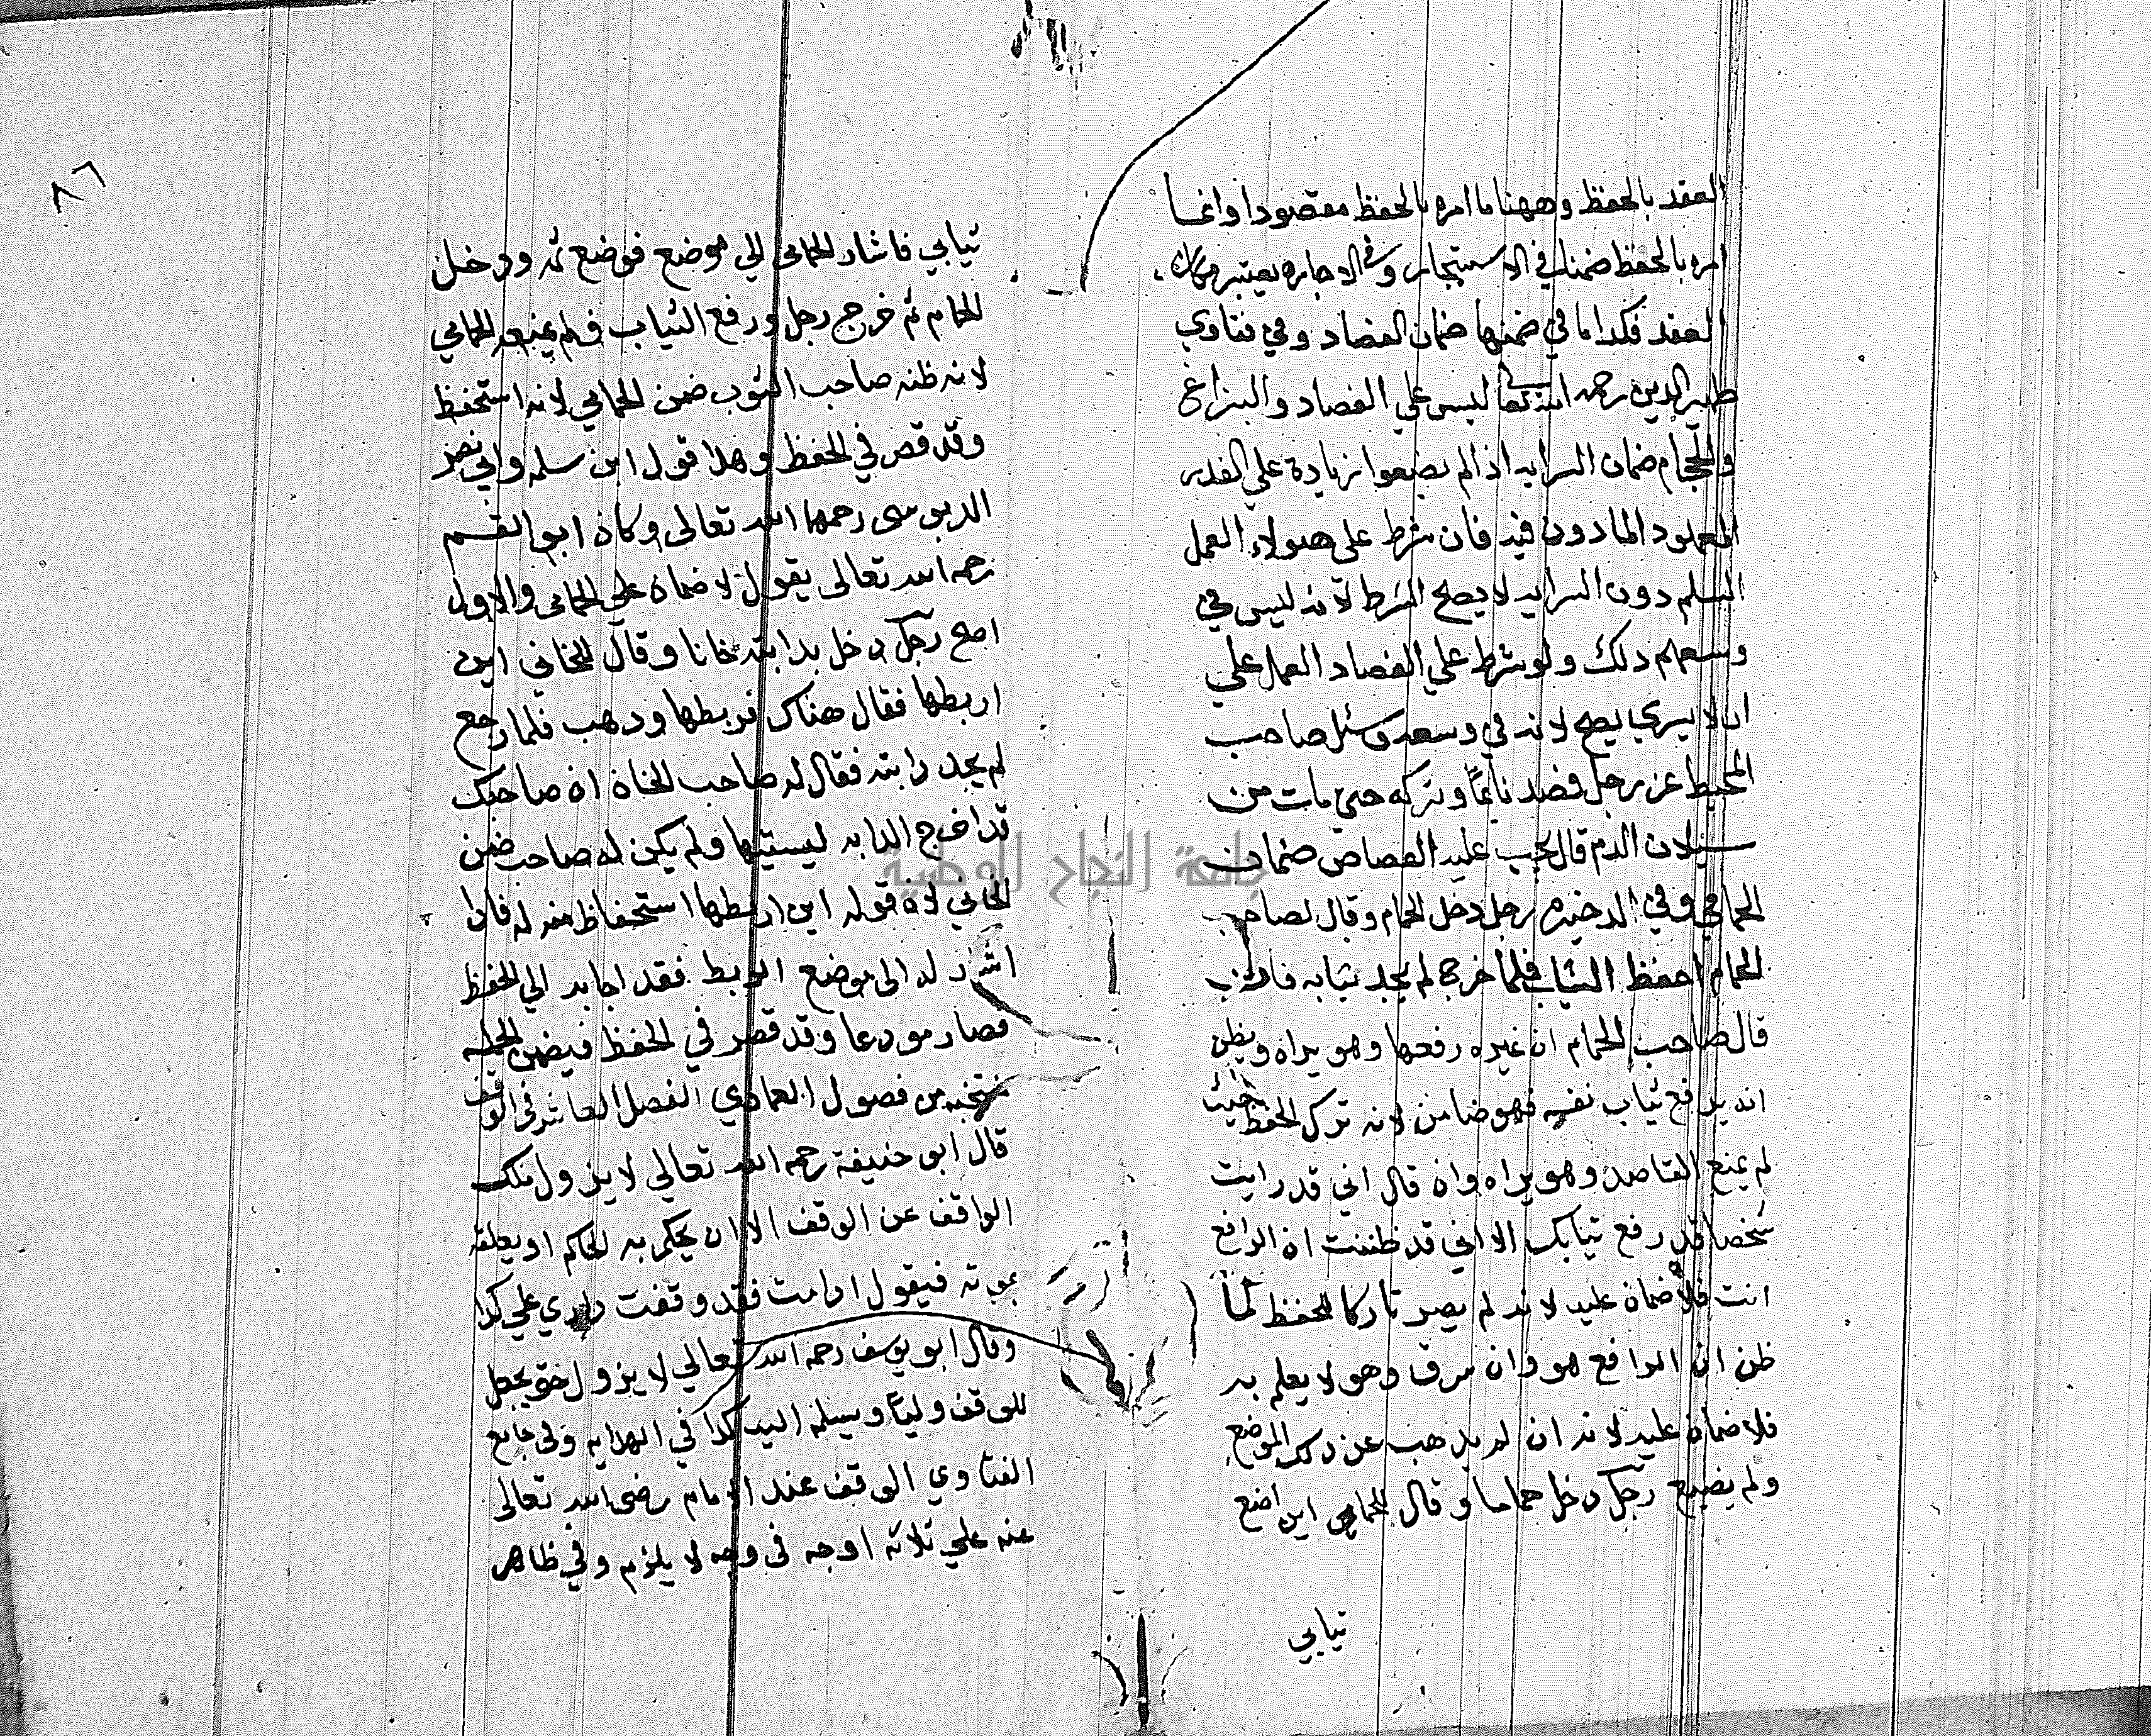 العقد بالحفظ وههنا ما امره بالحفظ مقصودا وانما
امره بالحفظ ضمنا في الاستيجار وفي الاجاره يعتبر
العقد فكذا ما في ضمنها ضمان الفصاد وفي فتاوي
ظهير الدين رحمه الله تعالى ليس علي الفصاد والبزاغ
والحجام ضمان السرايه اذا لم يضيعوا زيادة علي القدر
المعهود الماذون فيه فان شرط على هولاء العمل
السلم دون السرايه لا يصح الشرط لانه ليس في
وسعهم ذلك ولو شرط علي الفصاد العمل علي
ان لا يسري يصح لانه في وسعه سئل صاحب
المحيط عن رجل فصد نايما وتركه حتى مات من
سيلان الدم قال يجب عليه القصاص ضمان
الحمامي وفي الدخيره رجل دخل الحمام وقال لصاحب
الحمام احفظ الثياب فلما خرج لم يجد ثيابه فان
قال صاحب الحمام ان غيره رفعها وهو يراه ويظن
انه يرفع ثياب نفسه فهو ضامن لانه ترك الحفظ حيث
لم يمنع القاصد وهو يراه وان قال اني قد رايت
شخصا قد رفع تيابك الا اني قد ظننت ان الرافع
انت فلا ضمان عليه لانه لم يصر تاركا للحفظ لما
ظن ان الرافع هو وان سرق وهو لا يعلم به
فلا ضمان عليه لانه ان لم يذهب عن ذلك الموضع
ولم يضيع رجل دخل حماما وقال للحمامي اين اضع
تيابي
٨٦
تيابي فاشار الحمامي الي موضع فوضع ثمه ودخل
الحمام ثم خرج رجل ورفع الثياب فلم يمنعه الحمامي
لانه ظنه صاحب الثوب ضمن الحمامي لانه استحفظ
وقد قصر في الحفظ وهذا قول ابن سلمه وابي نصر
الدبوسى رحمهما الله تعالى وكان ابو القسم
رحمه الله تعالى يقول لا ضمان علي الحمامى والاول
اصح رجل دخل بدابته خانا وقال للخاني اين
اربطها فقال هناك فربطها ودهب فلما رجع
لم يجد دابته فقال له صاحب الخان ان صاحبك
قد اخرج الدابه ليسقيها ولم يكن له صاحب ضمن
الخاني لان قوله اين اربطها استحفاظ منه له فاذا
اشار له الى موضع الربط فقد اجابه الي الحفظ
فصار مودعا وقد قصر في الحفظ فيضمن الجمله
منتخبه من فصول العمادي الفصل العاشر في الوقف
قال ابو حنيفة رحمه الله تعالي لا يزول ملك
الواقف عن الوقف الا ان يحكم به الحاكم او يعلقه
بموته فيقول اذا مت فقد وقفت داري علي كذا
وقال ابو يوسف رحمه الله تعالي لا يزول حتى يجعل
للوقف وليا ويسلمه اليه كذا في الهدايه وفى جامع
الفتاوي الوقف عند الامام رضى الله تعالى
عنه علي ثلاثه اوجه فى وجه لا يلزم وفي ظاهر
جامعة النجاح الوطنية